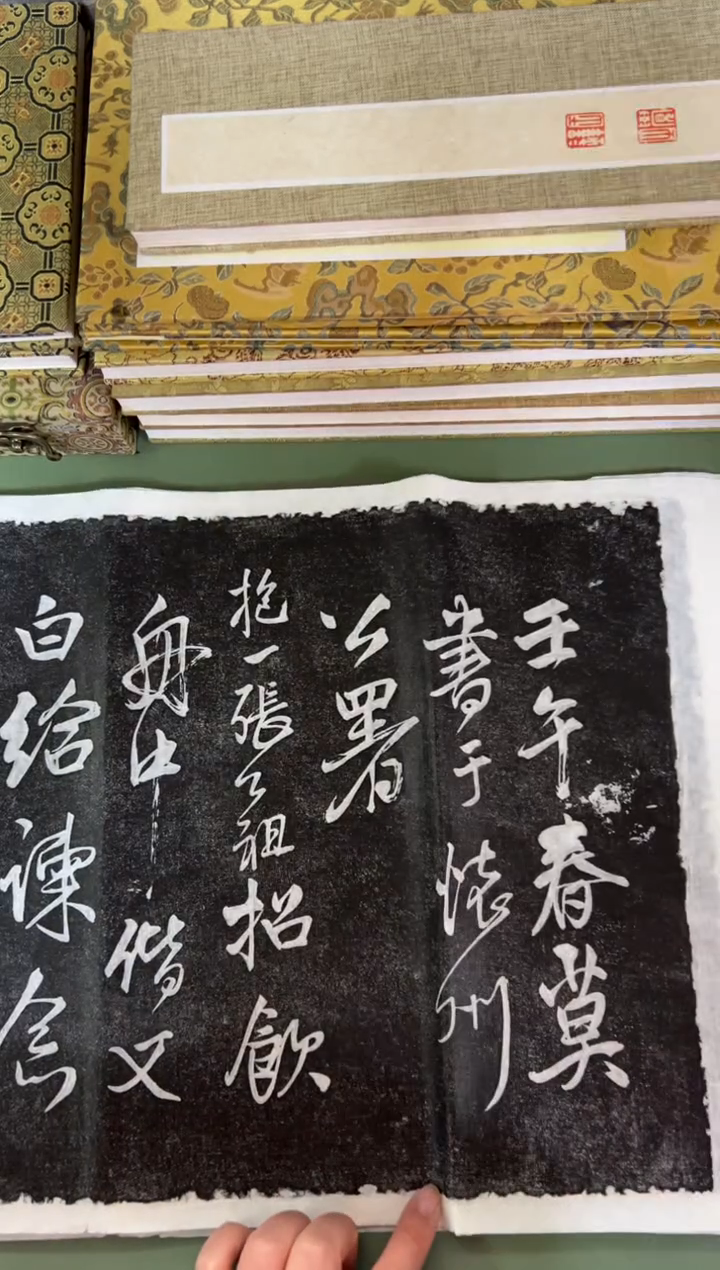 壬午春莫
書于懷州
公署
抱一張公祖招飲
舟中偕又
白給諫念